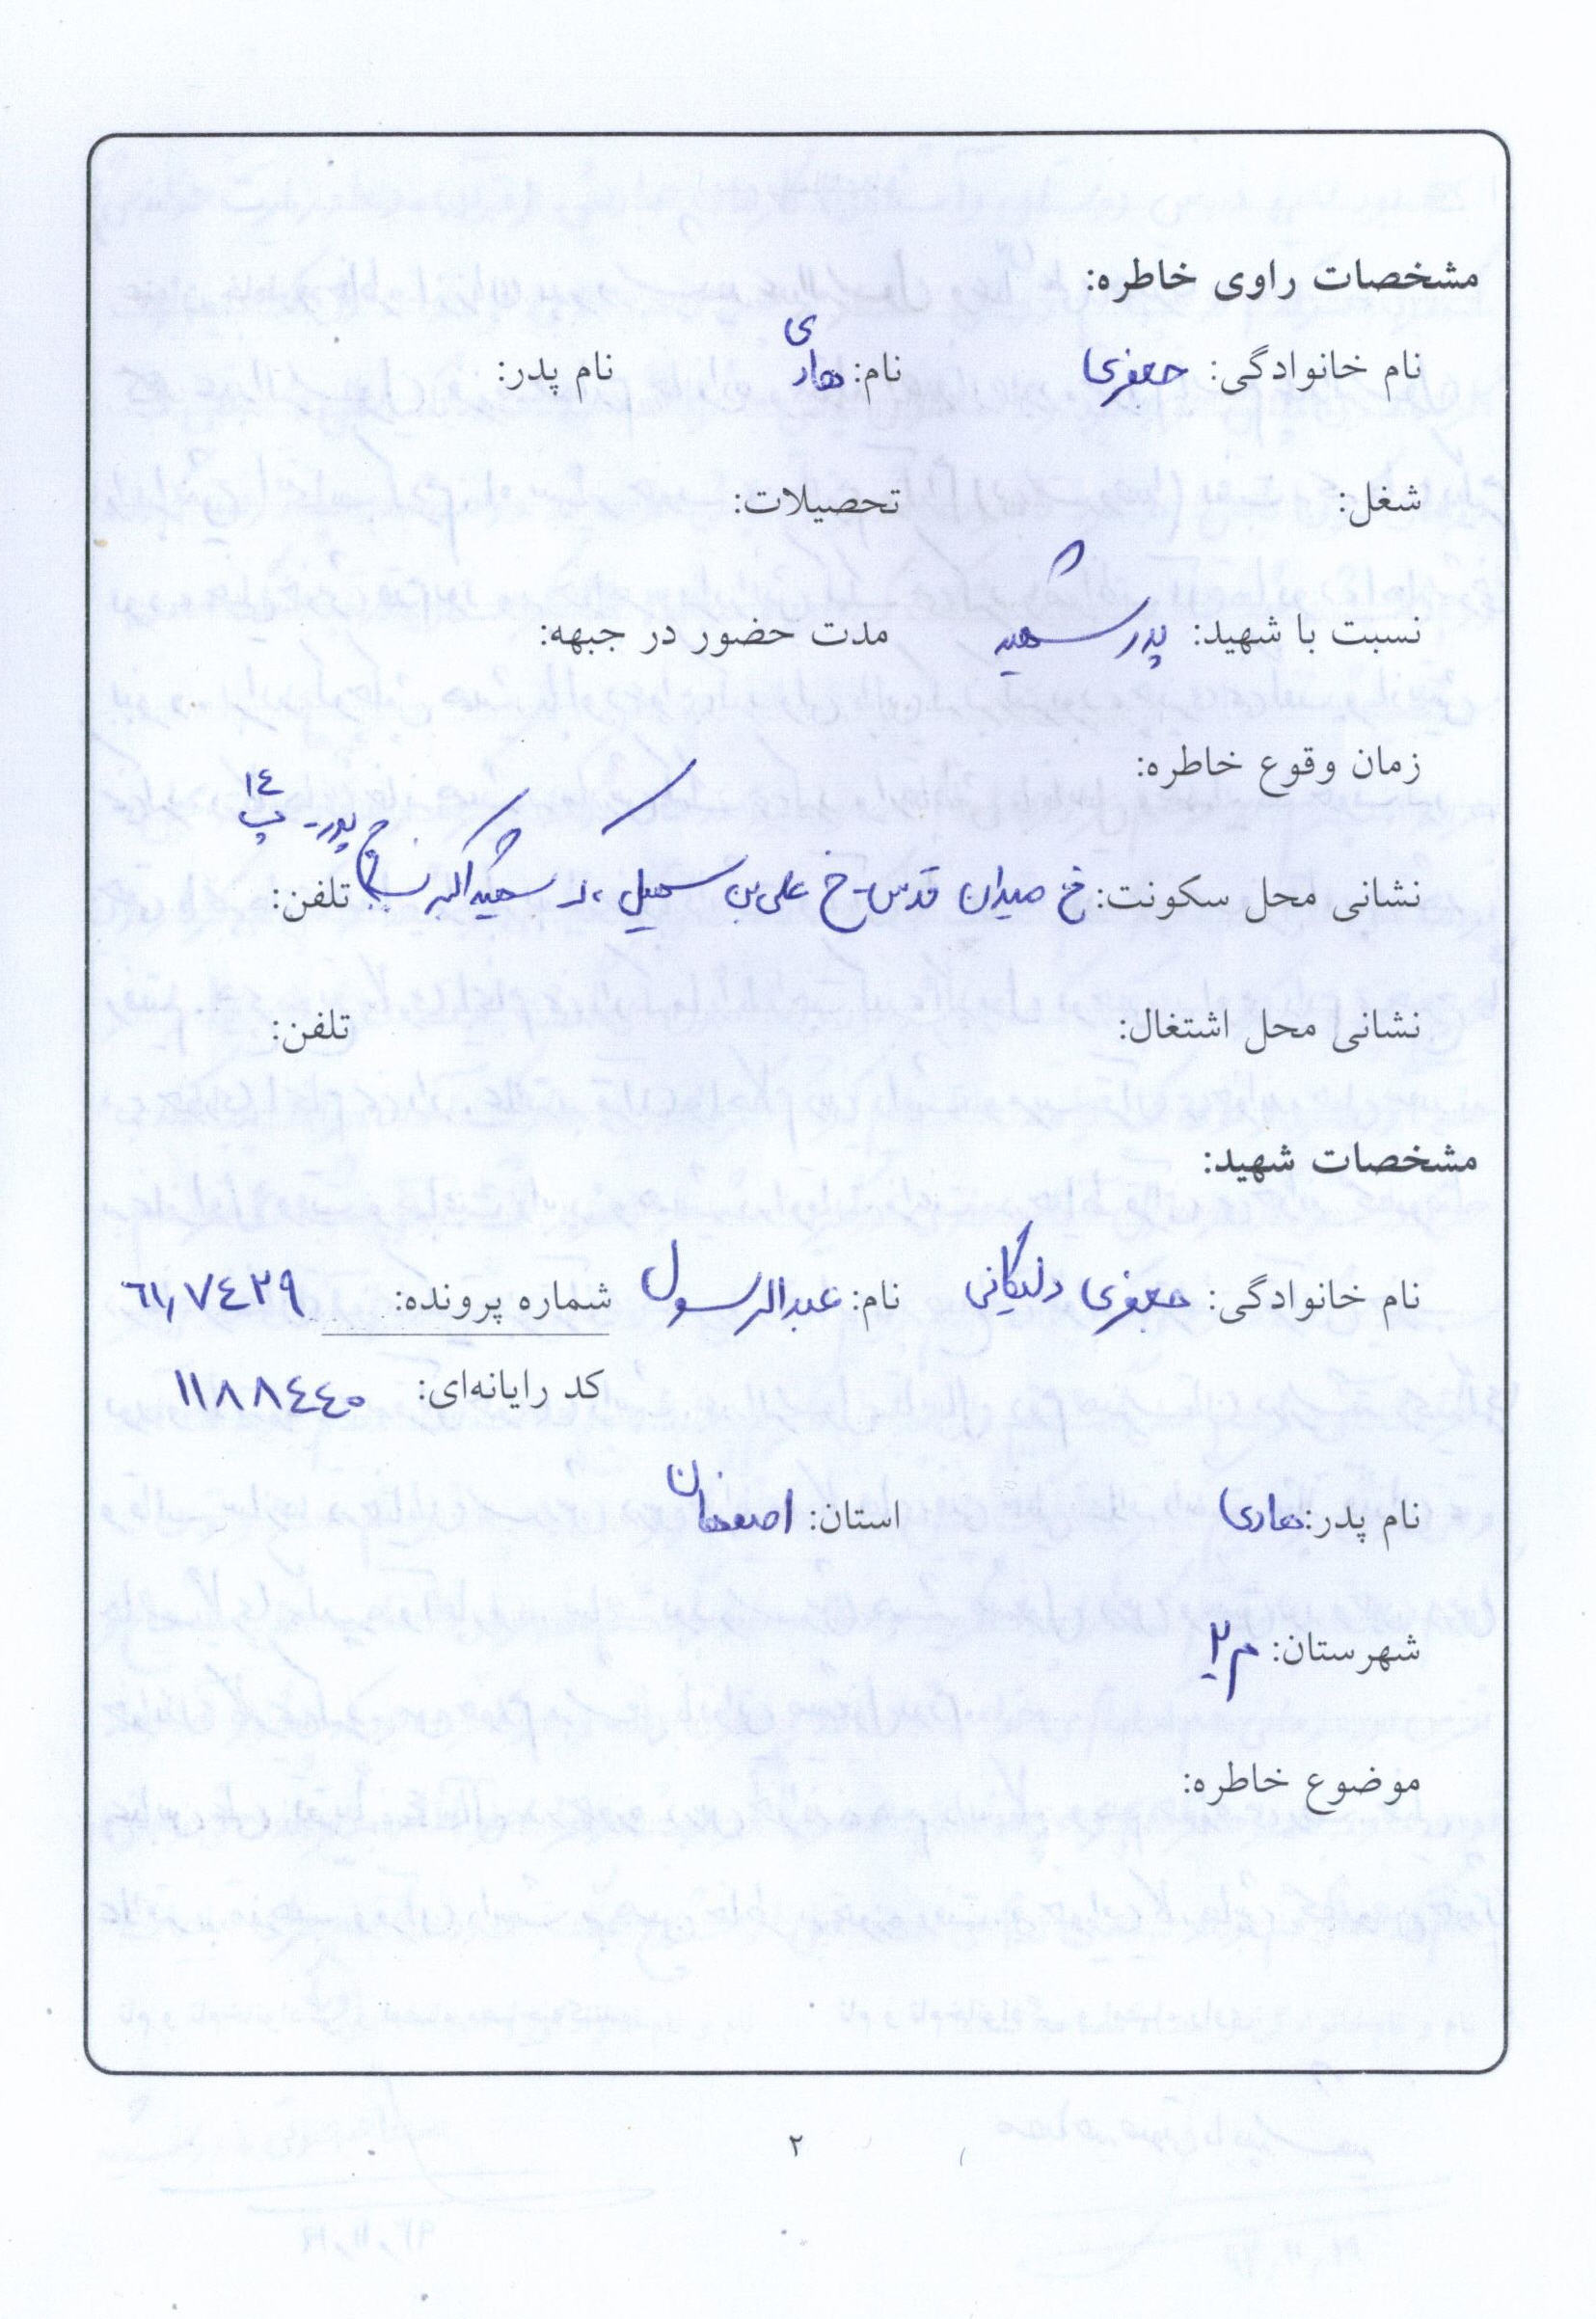 مشخصات راوی خاطره:
نام خانوادگی: جعفری نام: هادی نام پدر:
شغل: تحصیلات:
نسبت با شهید: پدر شهید مدت حضور در جبهه:
زمان وقوع خاطره:
نشانی محل سکونت: خ میدان قدس - خ علی بن سهیل، ک شهید اکبر پدر - پ ١٤ تلفن:
نشانی محل اشتغال: تلفن:
مشخصات شهید:
نام خانوادگی: جعفری دلیگانی نام: عبدالرسول شماره پرونده: ٦١,٧٤٢٩
کد رایانه‌ای: ١١٨٨٤٤٠
نام پدر: هادی استان: اصفهان
شهرستان: م ٢
موضوع خاطره:
٢